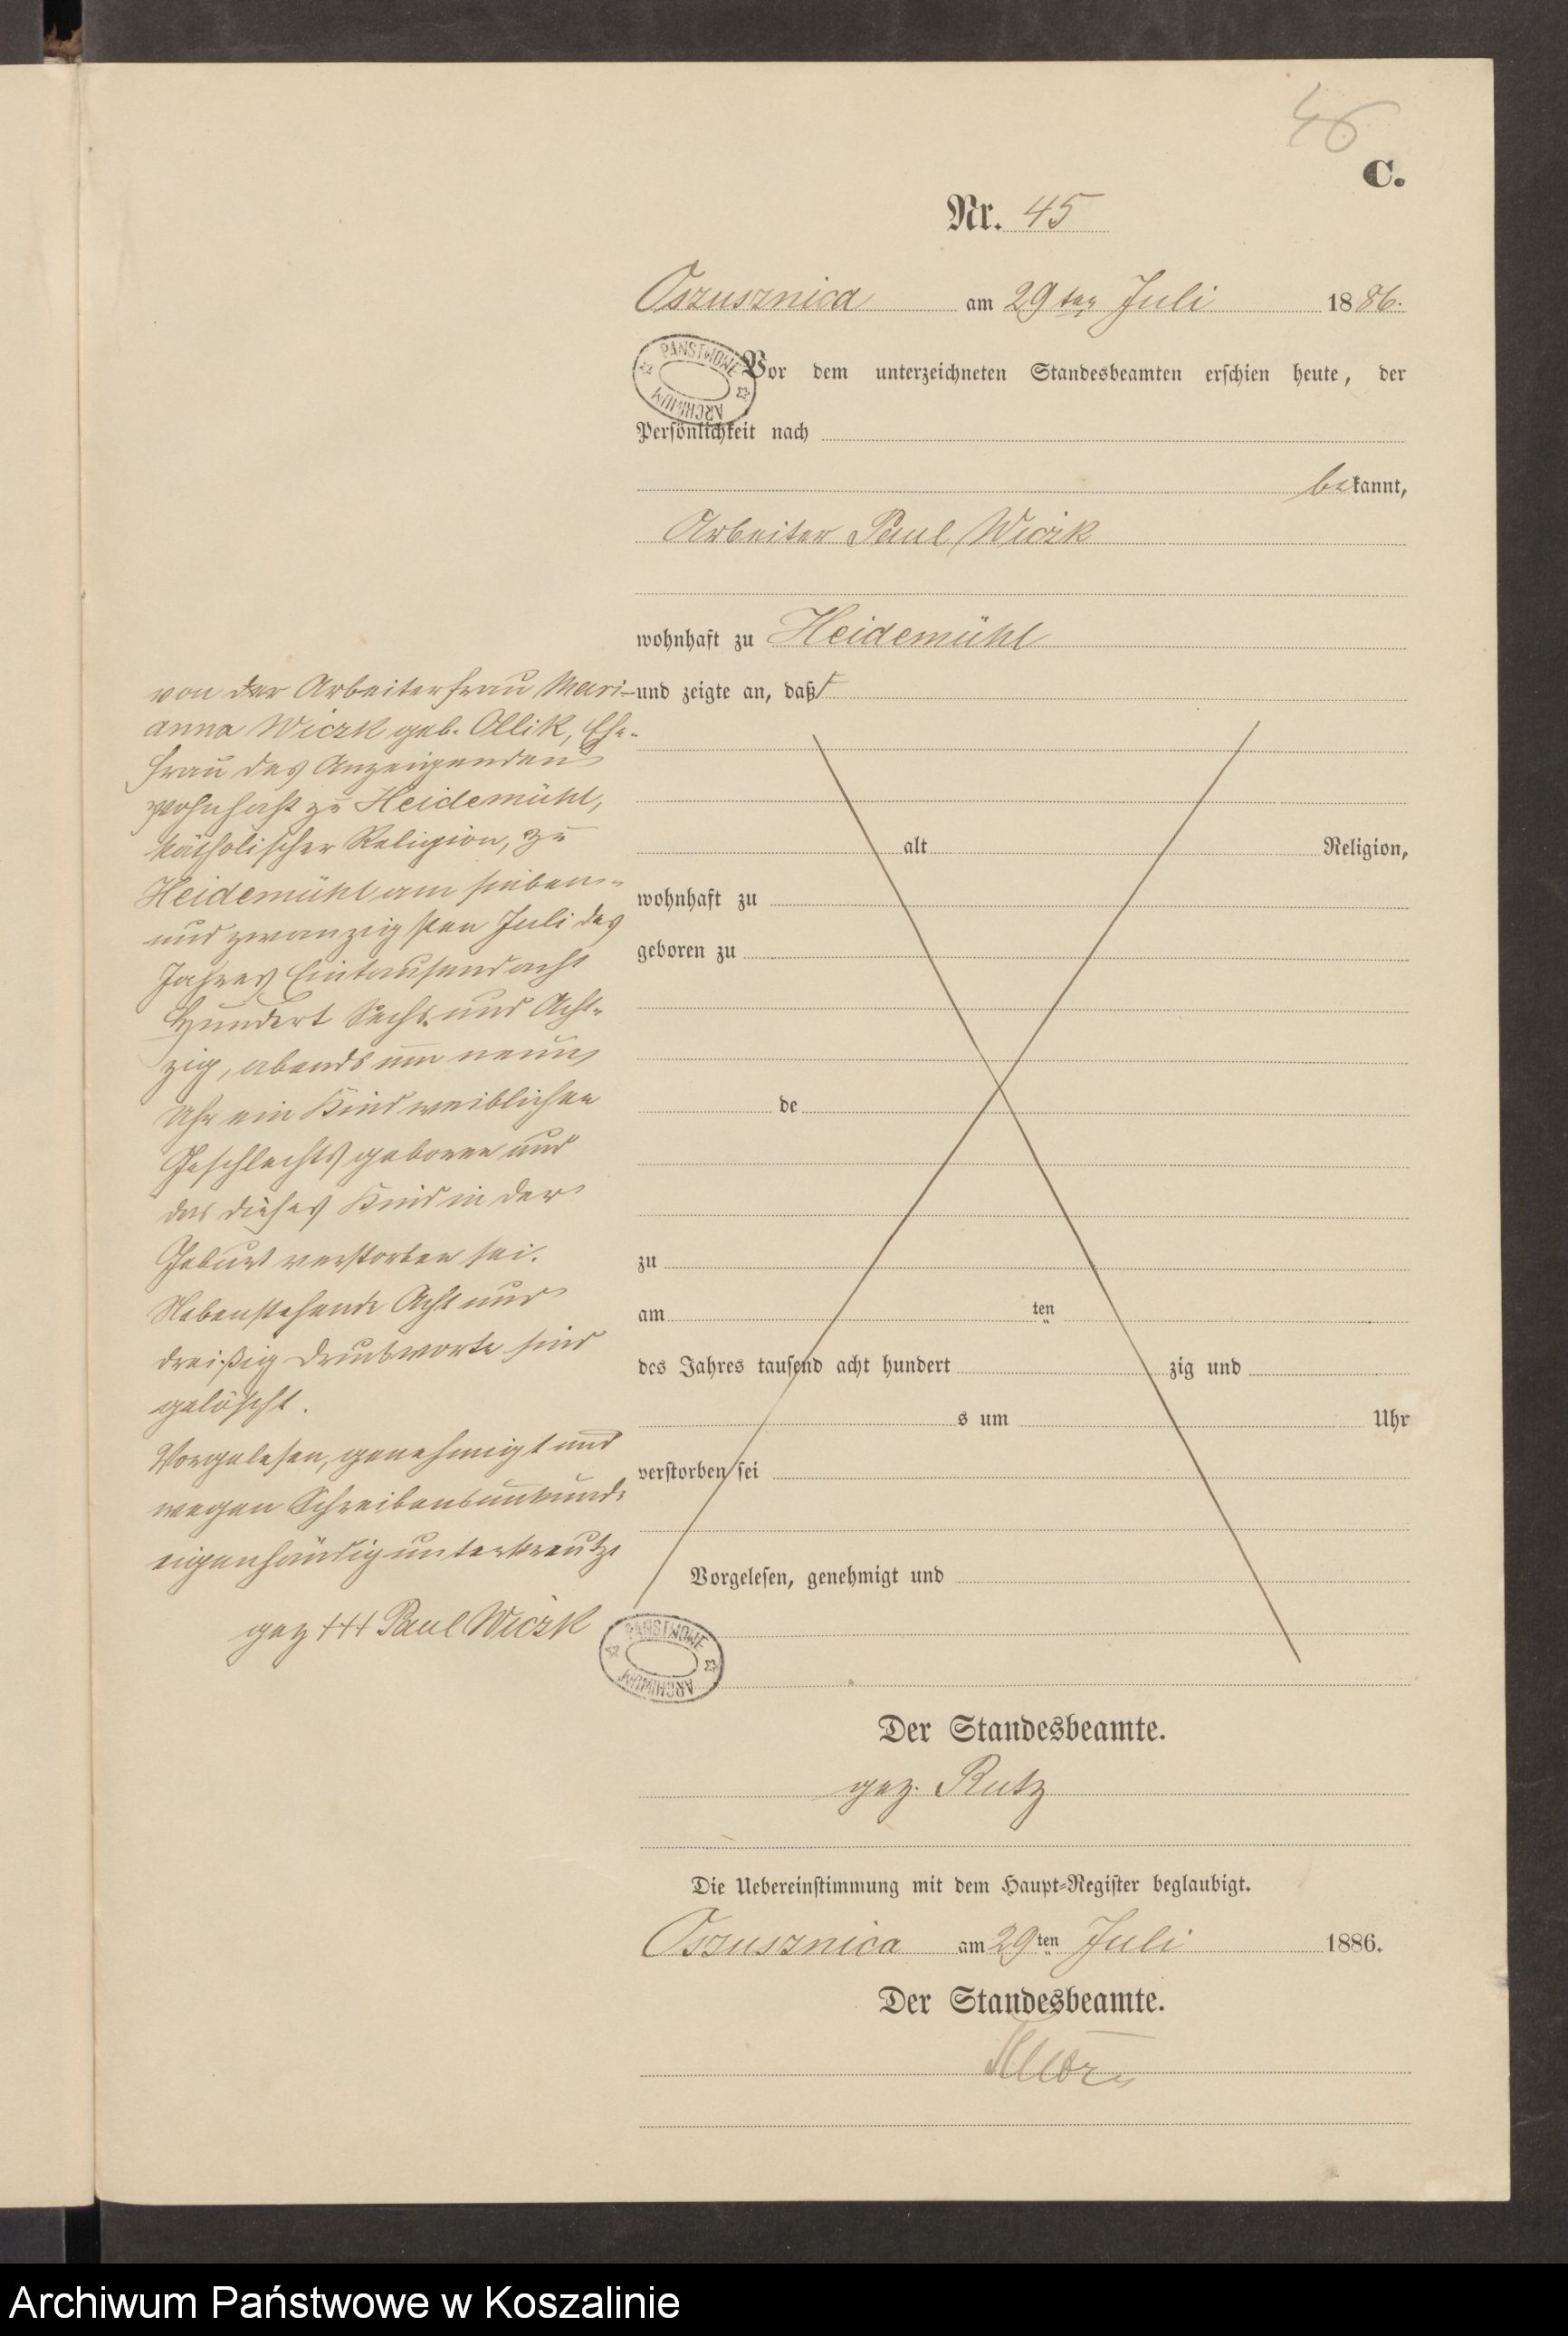 46
C.
Nr. 45
Oszusznica am 29ten Juli 1886.
PAŃSTWOWE ARCHIWUM
Vor dem unterzeichneten Standesbeamten erschien heute, der
Persönlichkeit nach
bekannt,
Arbeiter Paul Wiczk
wohnhaft zu Heidemühl
und zeigte an, daß
von der Arbeiterfrau Mari-
anna Wiczk geb. Ollik, Ehe-
frau des Anzeigenden
wohnhaft zu Heidemühl,
katholischer Religion, zu
Heidemühl am sieben-
und zwanzigsten Juli des
Jahres Eintausend acht
Hundert Sechs und Acht-
zig, abends um neun
Uhr ein Kind weiblichen
Geschlechts geboren und
das dieses Kind in der
Geburt verstorben sei.
Nebenstehende Acht und
dreißig Druckworte sind
gelöscht.
Vorgelesen, genehmigt und
wegen Schreibensunkunde
eigenhändig unterkreutzt
gez +++ Paul Wiczk
alt Religion,
wohnhaft zu
geboren zu
de
zu
am ten
des Jahres tausend acht hundert zig und
s um Uhr
verstorben sei
Vorgelesen, genehmigt und
PAŃSTWOWE ARCHIWUM
Der Standesbeamte.
gez. Rutz
Die Uebereinstimmung mit dem Haupt-Register beglaubigt.
Oszusznica am 29ten Juli 1886.
Der Standesbeamte.
Archiwum Państwowe w Koszalinie